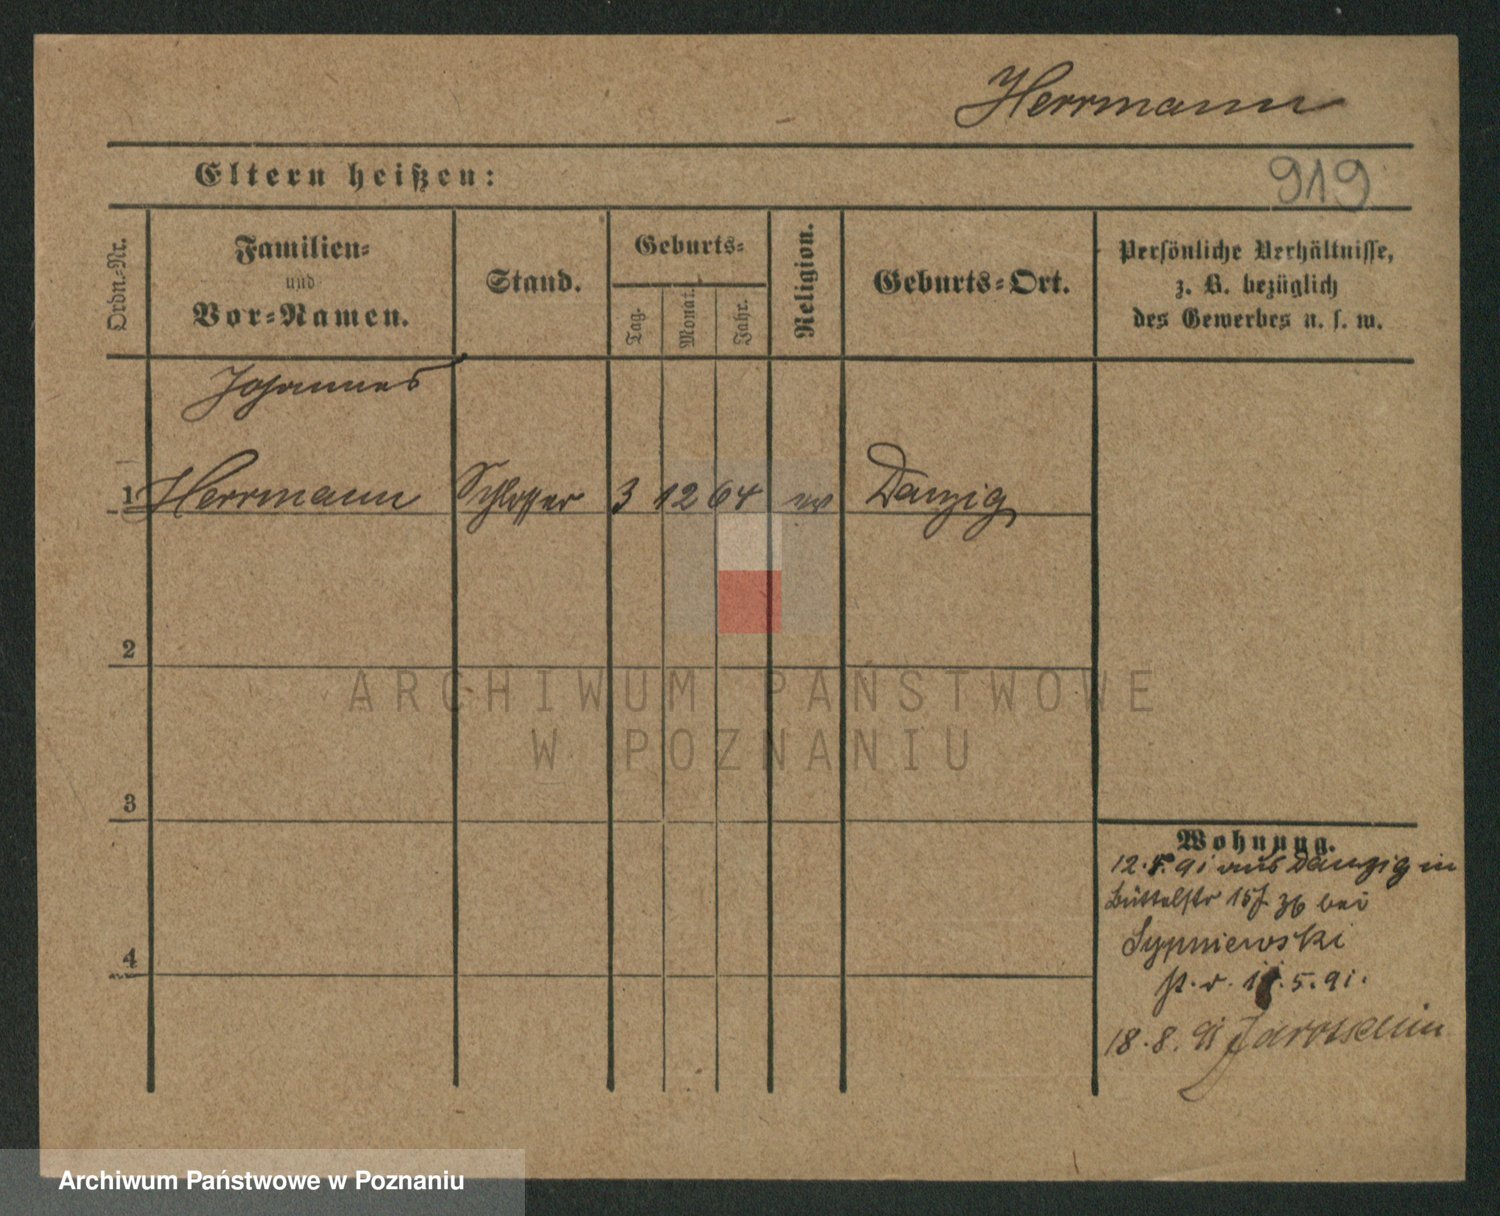 Herrmann
Eltern heißen:
919
Ordn.-Nr.
Familien-
und
Vor-Namen.
Stand.
Geburts-
Tag.
Monat.
Jahr.
Religion.
Geburts-Ort.
Persönliche Verhältnisse,
z. B. bezüglich
des Gewerbes u. s. w.
Johannes
1 Herrmann Schlosser 3 12 64 ev Danzig
2
ARCHIWUM PAŃSTWOWE
W POZNANIU
3
Wohnung.
12. 91 aus Danzig in
Büttelstr 15 bei
Sypniewski
5. 91.
4
18. 8. 91 Jarotschin
Archiwum Państwowe w Poznaniu